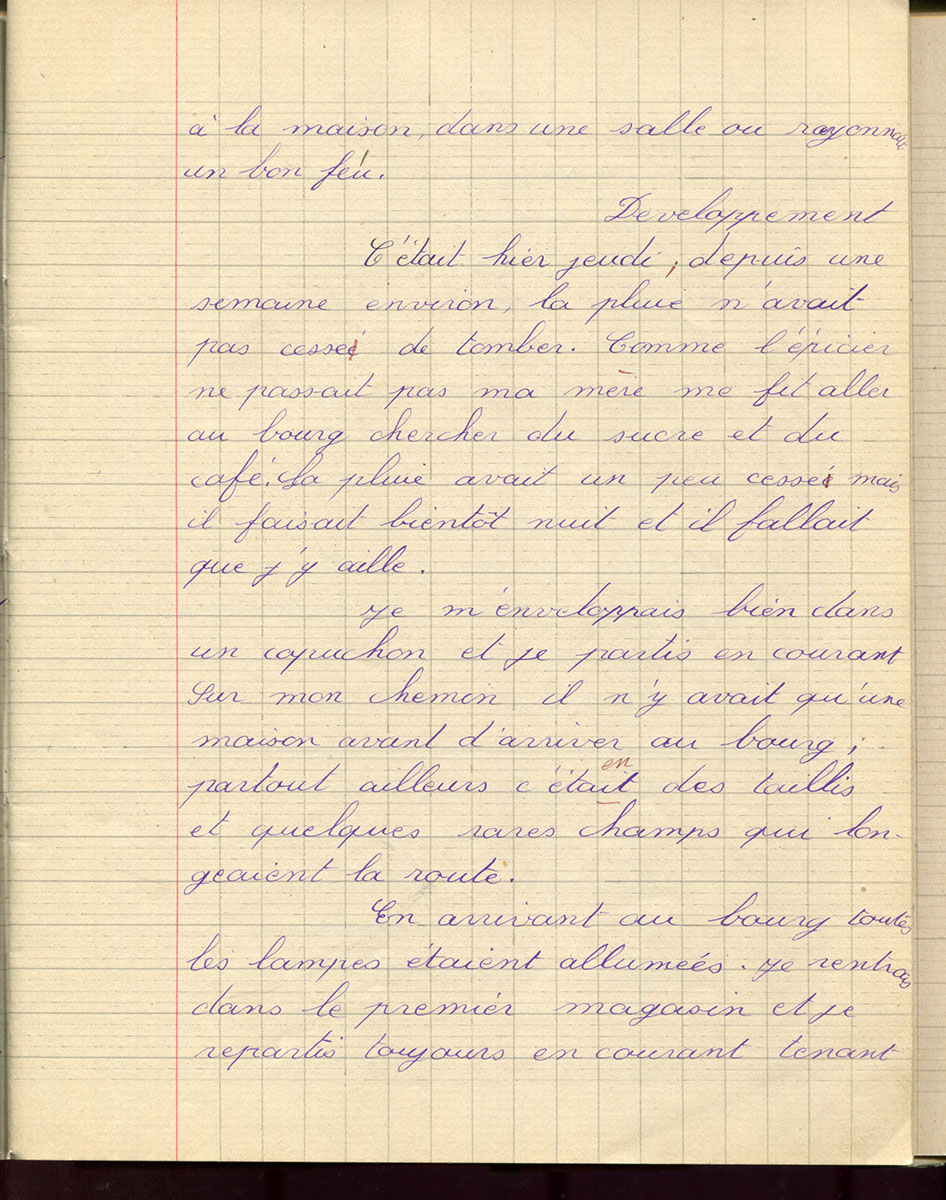 à la maison, dans une salle ou rayonnait
un bon feu.
Developpement
C'était hier jeudi, depuis une
semaine environ, la pluie n'avait
pas cessé de tomber. Comme l'épicier
ne passait pas ma mère me fit aller
au bourg chercher du sucre et du
café. La pluie avait un peu cessé mais
il faisait bientôt nuit et il fallait
que j'y aille.
Je m'enveloppais bien dans
un capuchon et je partis en courant
Sur mon chemin il n'y avait qu'une
maison avant d'arriver au bourg ;
en
partout ailleurs c'était des taillis
et quelques rares champs qui lon-
geaient la route.
En arrivant au bourg toutes
les lampes étaient allumées. Je rentrais
dans le premier magasin et je
repartis toujours en courant tenant